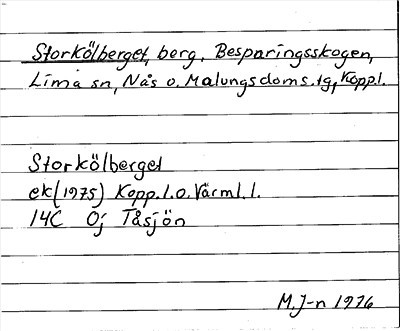 Storkölberget, berg, Besparingsskogen,
Lima sn, Nås o. Malungs doms.tg, Kopp.l.
Storkölberget
ek (1975) Kopp.l.o. Värml.l.
14C Oj Tåsjön
M.J-n 1976